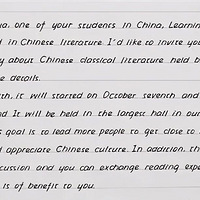 ua, one of your students in China. Learnin
d in Chinese literature I'd like to invite you
y about Chinese classical literature held b
e details.
th, it will started on October seventh and
nd It will be held in the largest hall in our
s goal is to lead more people to get close to
d appreciate Chinese culture. In addition, th
cussion and you can exchange reading expe
is of benefit to you.